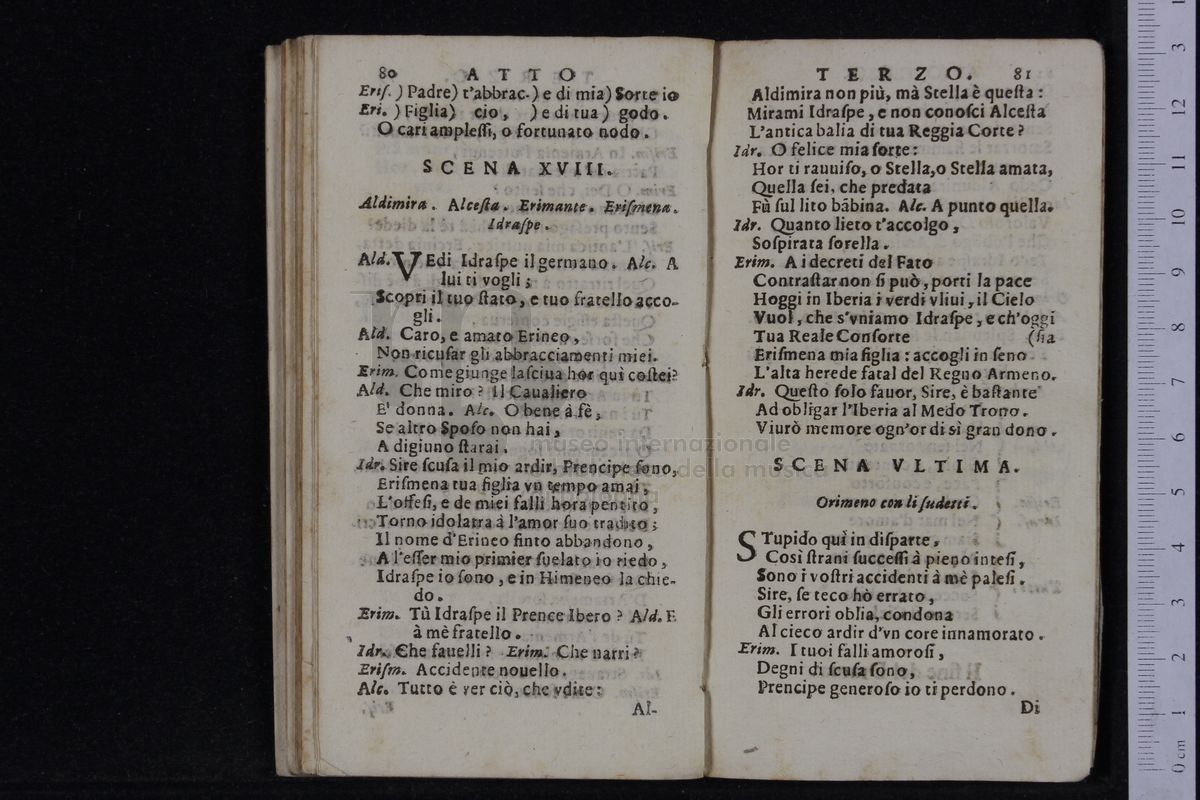 80 ATTO
Eris. ) Padre) t'abbrac-) e di mia) Sorte io
Eri. ) Figlia) cio, ) e di tua ) godo.
O cari amplessi, o fortunato nodo.
SCENA XVIII.
Aldimira. Alcesta. Erimante. Erismena.
Idraspe.
Ald. VEdi Idraspe il germano. Alc. A
lui ti vogli;
Scopri il tuo stato, e tuo fratello acco-
gli.
Ald. Caro, e amato Erineo,
Non ricusar gli abbracciamenti miei.
Erim. Come giunge lasciua hor quì costei?
Ald. Che miro? Il Caualiero
E' donna. Alc. O bene à fè,
Se altro Sposo non hai,
A digiuno starai.
Idr. Sire scusa il mio ardir, Prencipe sono,
Erismena tua figlia vn tempo amai,
L'offesi, e de miei falli hora pentito,
Torno idolatra à l'amor suo tradito;
Il nome d'Erineo finto abbandono,
A l'esser mio primier suelato io riedo,
Idraspe io sono, e in Himeneo la chie-
do.
Erim. Tù Idraspe il Prence Ibero? Ald. E
à mè fratello.
Idr. Che fauelli? Erim. Che narri?
Erism. Accidente nouello.
Alc. Tutto è ver ciò, che vdite:
Al-
TERZO. 81
Aldimira non più, mà Stella è questa:
Mirami Idraspe, e non conosci Alcesta
L'antica balia di tua Reggia Corte?
Idr. O felice mia sorte:
Hor ti rauuiso, o Stella, o Stella amata,
Quella sei, che predata
Fù sul lito bābina. Alc. A punto quella.
Idr. Quanto lieto t'accolgo,
Sospirata sorella.
Erim. A i decreti del Fato
Contrastar non si può, porti la pace
Hoggi in Iberia i verdi vliui, il Cielo
Vuol, che s'vniamo Idraspe, e ch'oggi
Tua Reale Consorte (sia
Erismena mia figlia: accogli in seno
L'alta herede fatal del Regno Armeno.
Idr. Questo solo fauor, Sire, è bastante
Ad obligar l'Iberia al Medo Trono.
Viurò memore ogn'or di sì gran dono.
SCENA VLTIMA.
Orimeno con li sudetti.
STupido quì in disparte,
Così strani successi à pieno intesi,
Sono i vostri accidenti à mè palesi.
Sire, se teco hò errato,
Gli errori oblia, condona
Al cieco ardir d'vn core innamorato.
Erim. I tuoi falli amorosi,
Degni di scusa sono,
Prencipe generoso io ti perdono.
Di
museo internazionale
della musica
0 cm 1 2 3 4 5 6 7 8 9 10 11 12 13